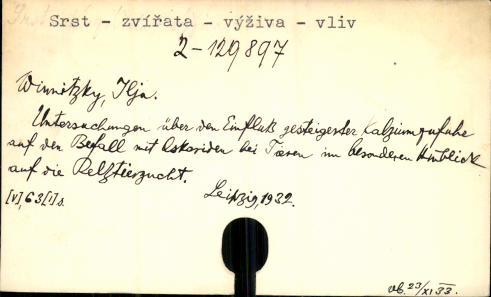 Srst - zvířata - výživa - vliv
2-129897
Winnitzky, Ilja.
Untersuchungen über den Einfluß gesteigerter Kalziumzufuhr
auf den Befall mit Askariden bei Tieren im besonderen Hinblick
auf die Pelztierzucht.
Leipzig, 1932.
[V], 63 [1] s.
vb. 23/XI 33.